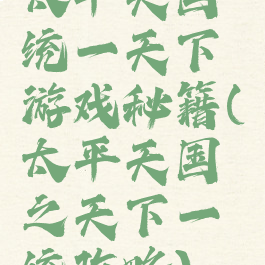 太平天国
统一天下
游戏秘籍(
太平天国
之天下一
统攻略)